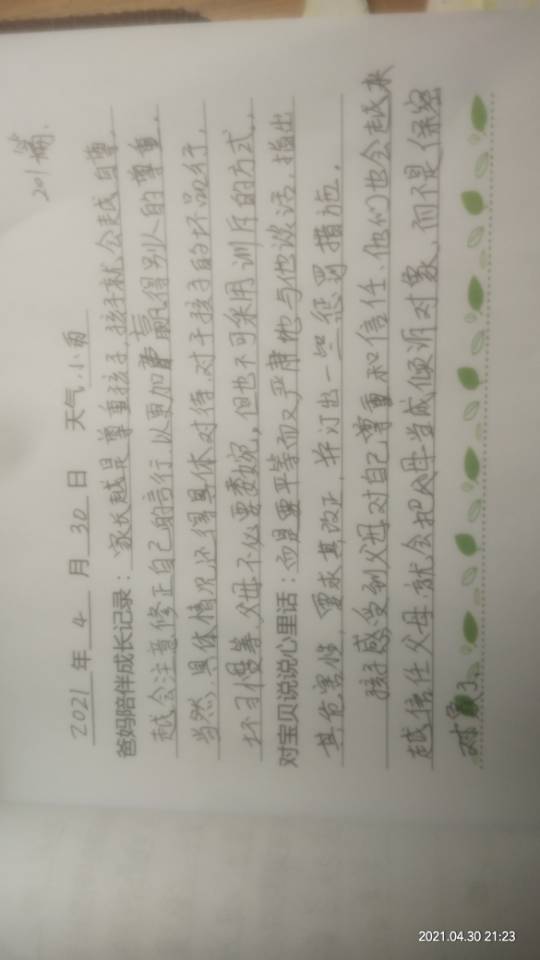 201篇.
2021 年 4 月 30 日 天气 小雨
爸妈陪伴成长记录：家长越是尊重孩子，孩子就会越自尊，
越会注意修正自己的言行，以更加赢得别人的尊重，
当然，具体情况还得具体对待，对于孩子的坏品行，
坏习惯等，父母不必要委婉，但也不可采用训斥的方式，
对宝贝说说心里话：而是要平等而又严肃地与他谈话，指出
其危害性，要求其改正，并订出一些惩罚措施。
孩子感受到父母对自己尊重和信任，他们也会越来
越信任父母，就会把父母当成倾诉对象，而不是保密
对象了.
2021.04.30 21:23